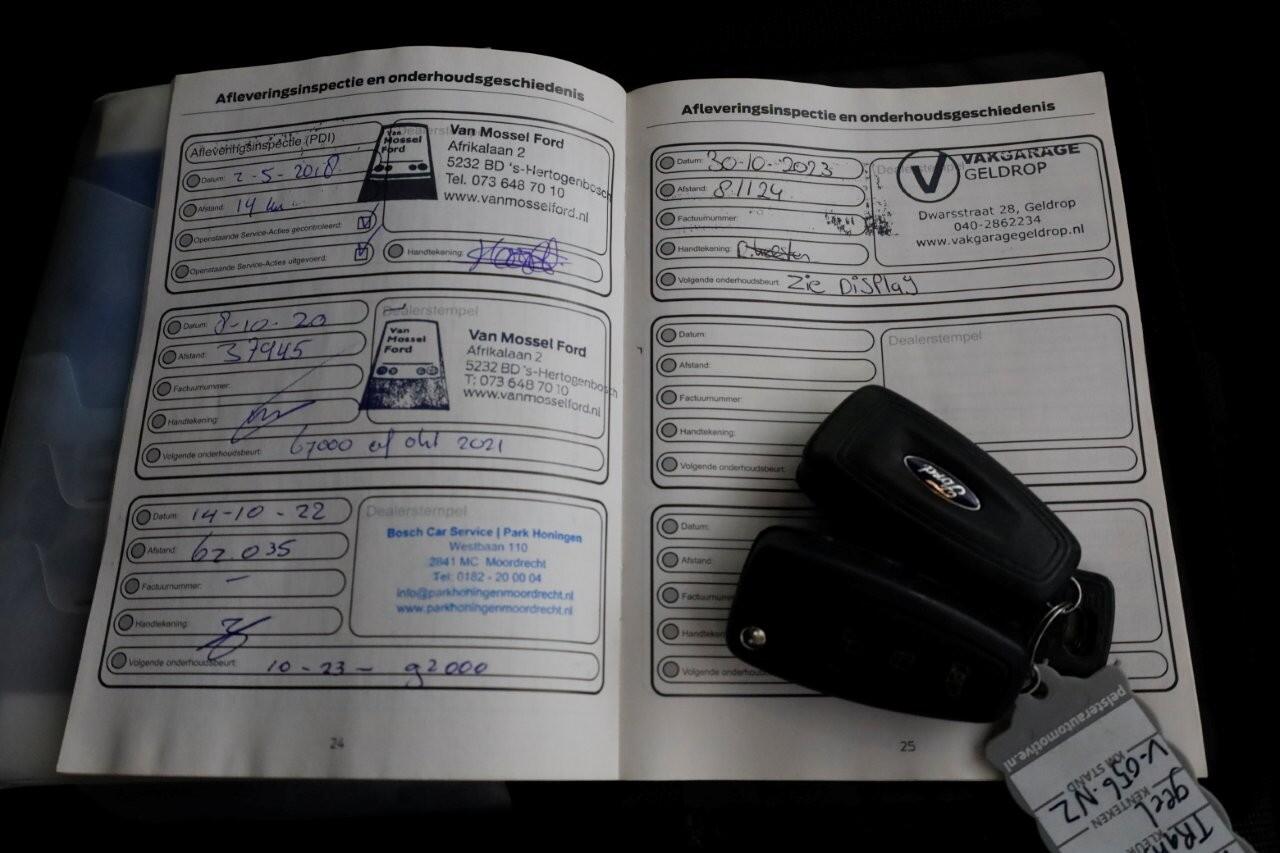 Afleveringsinspectie en onderhoudsgeschiedenis
Afleveringsinspectie (PDI)
Datum: 2-5-2018
Afstand: 14 km
Openstaande Service-Acties gecontroleerd:
Openstaande Service-Acties uitgevoerd:
Van Mossel Ford
Van Mossel Ford
Afrikalaan 2
5232 BD 's-Hertogenbosch
Tel. 073 648 70 10
www.vanmosselford.nl
Handtekening:
Datum: 8-10-20
Afstand: 37945
Factuurnummer:
Handtekening:
Volgende onderhoudsbeurt: 67000 of okt 2021
Dealerstempel
Van Mossel Ford
Van Mossel Ford
Afrikalaan 2
5232 BD 's-Hertogenbosch
T: 073 648 70 10
www.vanmosselford.nl
Datum: 14-10-22
Afstand: 62035
Factuurnummer: -
Handtekening:
Volgende onderhoudsbeurt: 10-23 - 92000
Dealerstempel
Bosch Car Service | Park Honingen
Westbaan 110
2841 MC Moordrecht
Tel: 0182 - 20 00 04
info@parkhoningenmoordrecht.nl
www.parkhoningenmoordrecht.nl
24
Afleveringsinspectie en onderhoudsgeschiedenis
Datum: 30-10-2023
Afstand: 81124
Factuurnummer:
Handtekening:
Volgende onderhoudsbeurt: Zie Display
V VAKGARAGE
GELDROP
Dwarsstraat 28, Geldrop
040-2862234
www.vakgaragegeldrop.nl
Datum:
Afstand:
Factuurnummer:
Handtekening:
Volgende onderhoudsbeurt:
Dealerstempel
Datum:
Afstand:
Volgende
25
Ford
pelsterautomotive.nl
KM STAND
V-056-NZ
KENTEKEN
geel